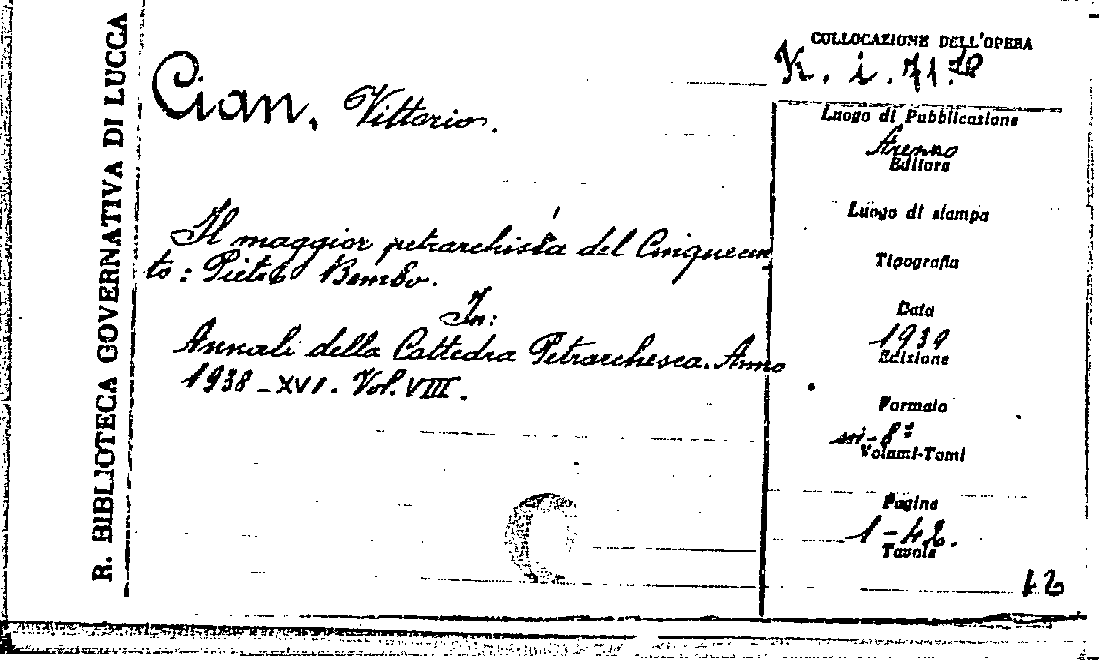 R. BIBLIOTECA GOVERNATIVA DI LUCCA
Cian, Vittorio.
Il maggior petrarchista del Cinquecen
to: Pietro Bembo.
In:
Annali della Cattedra Petrarchesca. Anno
1938-XVI. Vol. VIII.
COLLOCAZIONE DELL'OPERA
K. i. 71.78
Luogo di Pubblicazione
Arezzo
Editore
Luogo di stampa
Tipografia
Data
1939
Edizione
Formato
in-8º
Volumi-Tomi
Pagine
1-42.
Tavole
12